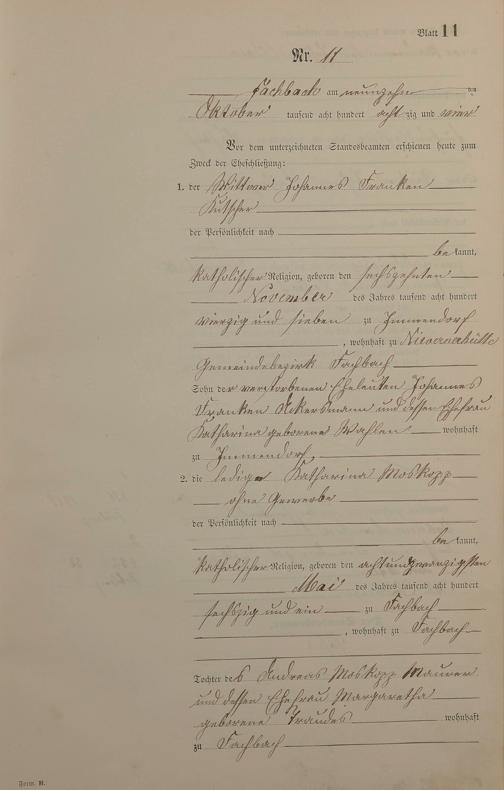 Blatt 11
Nr. 11
Fachbach am neunzehn ten
Oktober tausend acht hundert acht zig und vier
Vor dem unterzeichneten Standesbeamten erschienen heute zum
Zweck der Eheschließung:
1. der Wittwer Johannes Franken
Kutscher
der Persönlichkeit nach
be kannt,
katholischer Religion, geboren den sechszehnten
November des Jahres tausend acht hundert
vierzig und sieben zu Immendorf
, wohnhaft zu Nievernerhütte
Gemeindebezirk Fachbach
Sohn der verstorbenen Eheleuten Johannes
Franken Ackersmann und dessen Ehefrau
Katharina geborene Wahlen wohnhaft
zu Immendorf,
2. die ledige Katharina Moskopp
ohne Gewerbe
der Persönlichkeit nach
be kannt,
katholischer Religion, geboren den achtundzwanzigsten
Mai des Jahres tausend acht hundert
sechszig und ein zu Fachbach
, wohnhaft zu Fachbach
Tochter des Andreas Moskopp Maurer
und dessen Ehefrau Margaretha
geborene Traudes wohnhaft
zu Fachbach
Form. B.